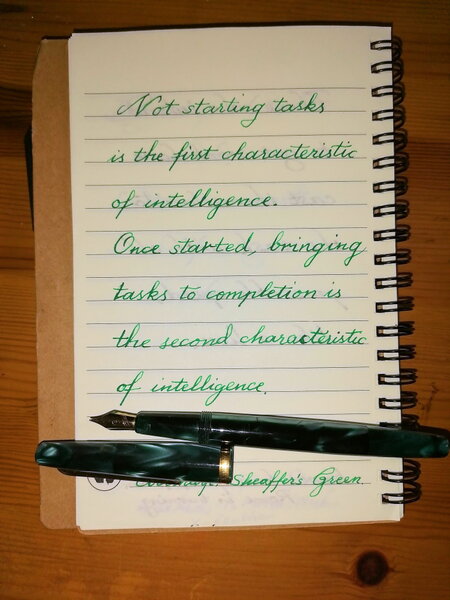 Not starting tasks
is the first characteristic
of intelligence.
Once started, bringing
tasks to completion is
the second characteristic
of intelligence.
Sheaffer's Green